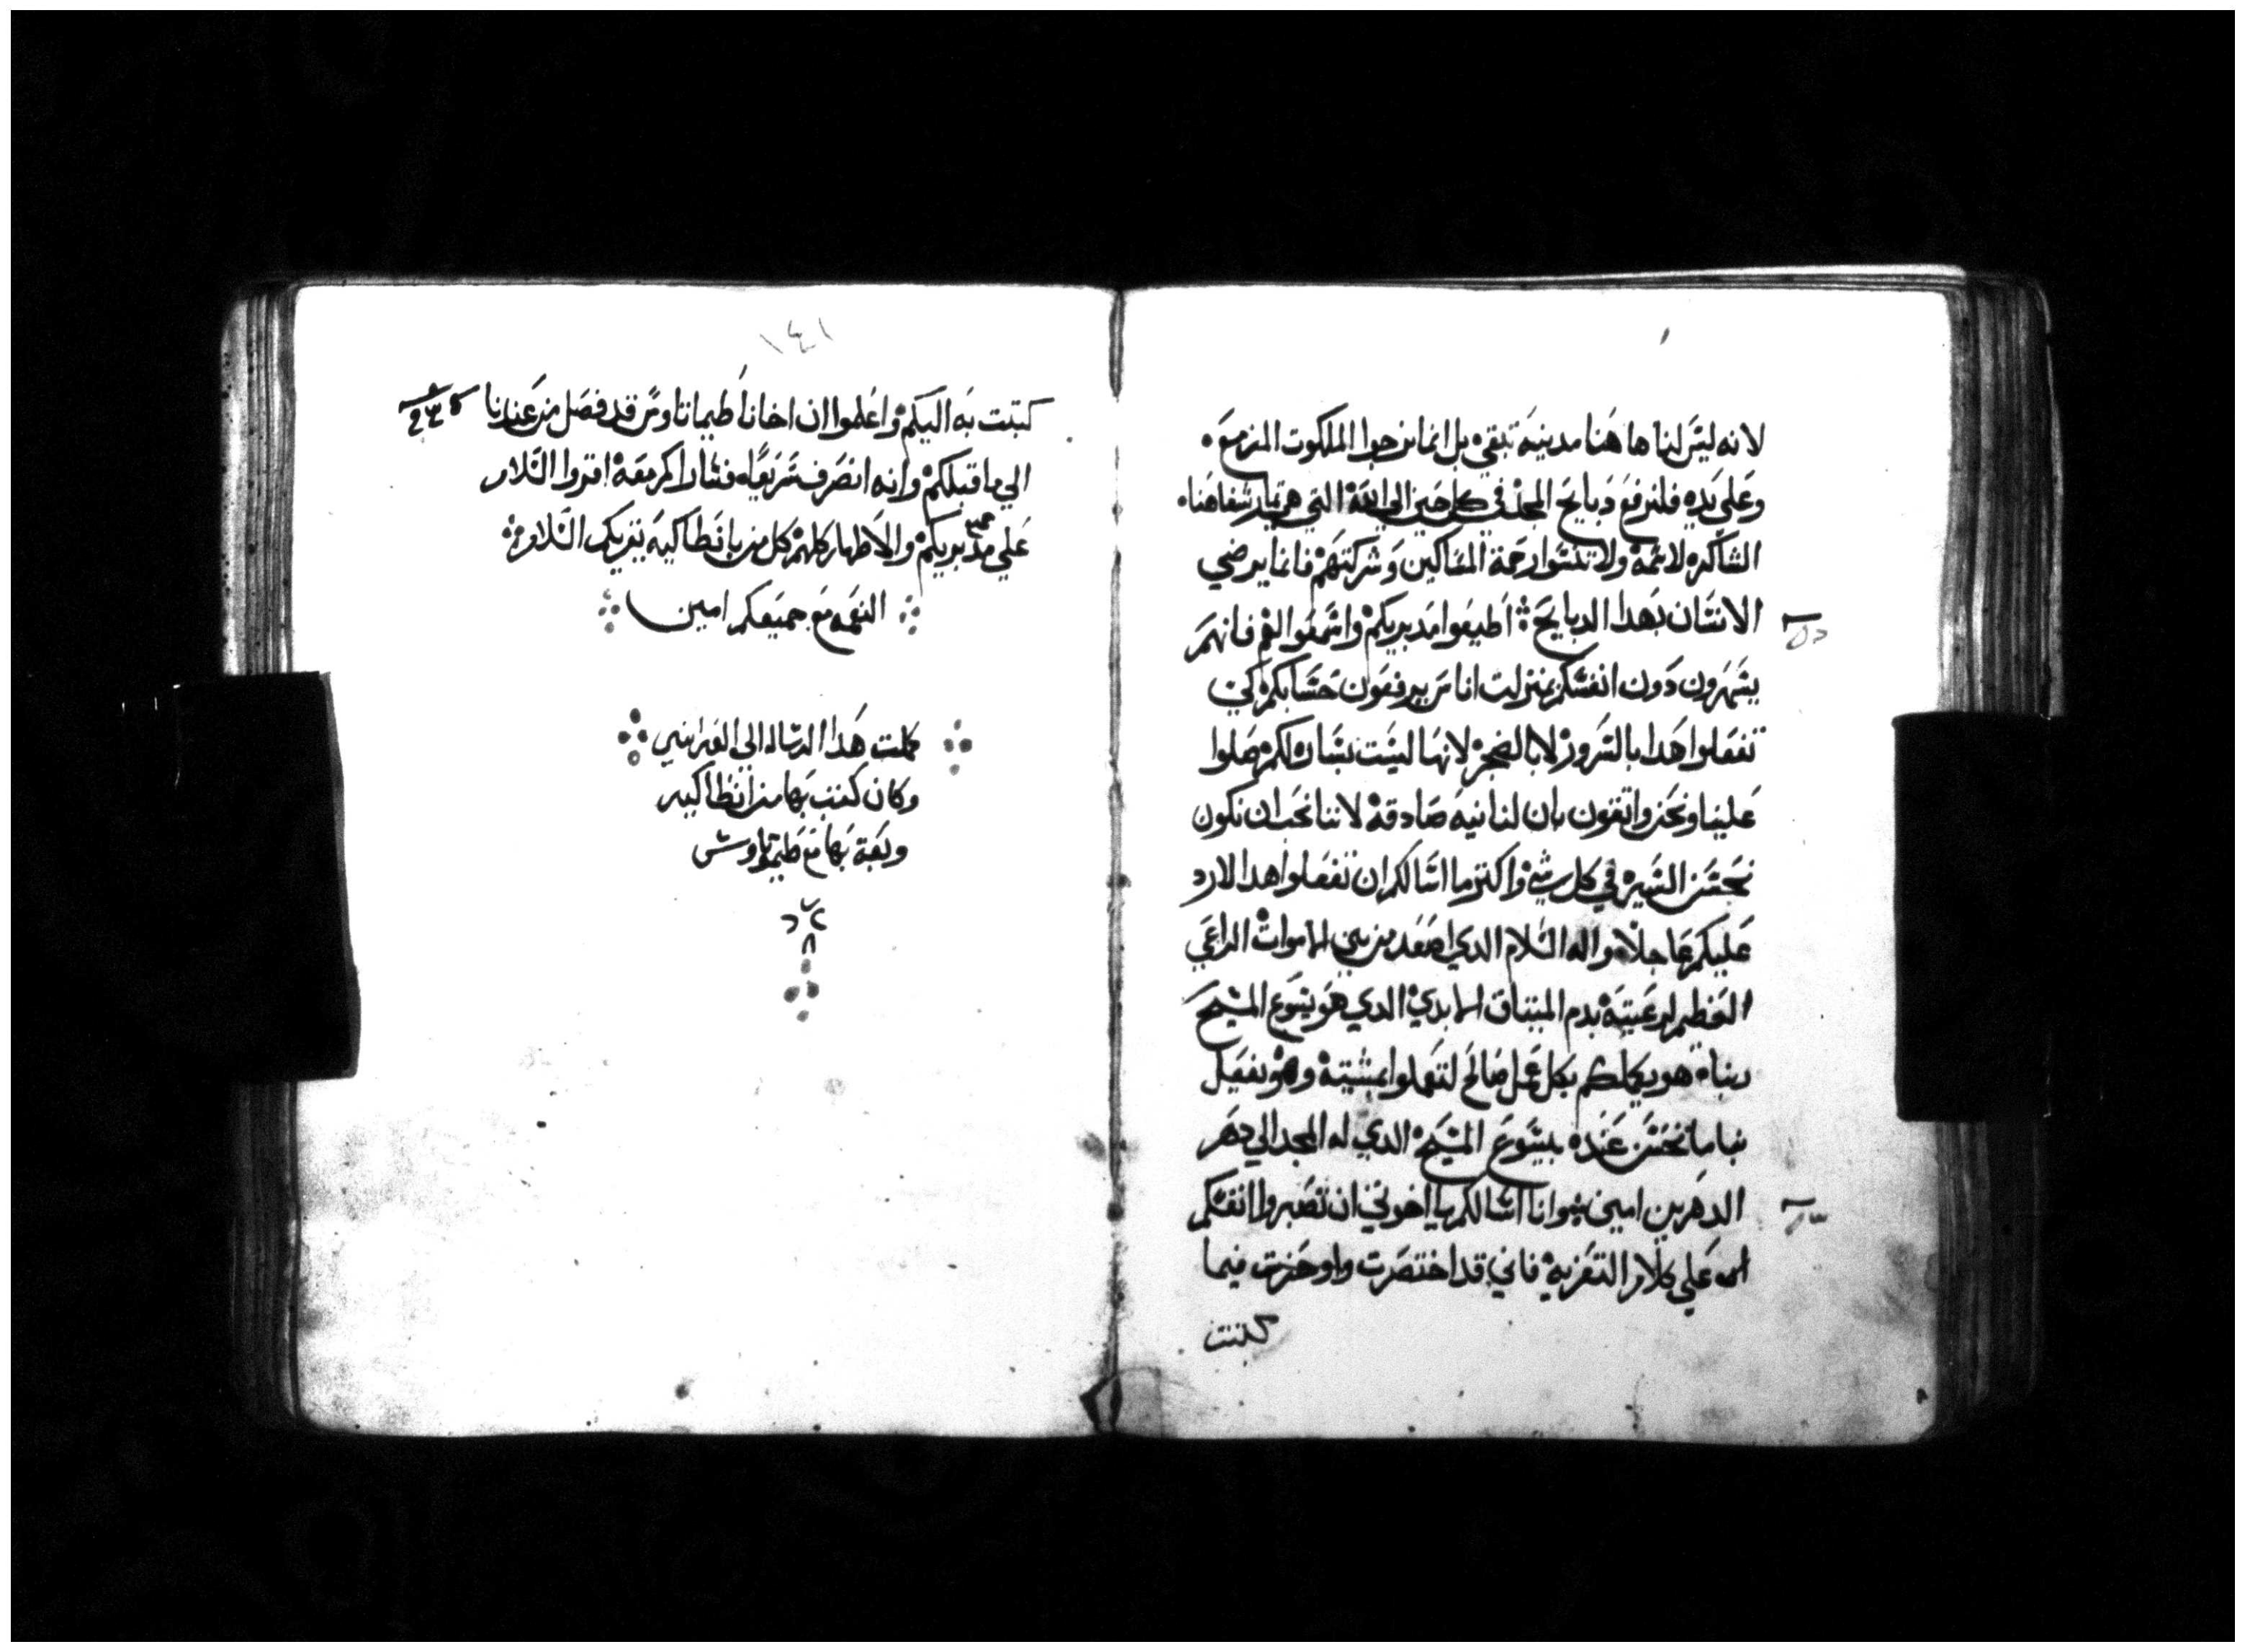 لانه ليس لنا ها هنا مدينه تبقي بل انما نرجوا الملكوت المزمعه
وعلي يديه فلنرفع دبايح المجد في كل حين الي الله التي هي تمار شفاهنا
الشاكره لاسمه ولا تنسوا رحمة المساكين وشركتهم فانما يرضي
الانسان بهدا الدبايح اطيعوا مدبريكم واسمعوا لهم فانهم
يسهرون دون انفسكم بمنزلت اناس يرفعون حسابكم لكي
تفعلوا هدا بالسرور لا بالضجر لانها ليست بسان لكم صلوا
علينا ونحن واتقون بان لنا نيه صادقه لاننا نحب ان نكون
نحسن السيره في كل شي واكتر ما اسالكم ان تفعلوا هدا لارد
عليكم عاجلا واله السلام الدي اصعد من بين الاموات الراعي
العظيم لرعيته بدم الميتاق الابدي الدي هو يسوع المسيح
ربنا هو يكملكم بكل عمل صالح لتعملوا بمشيته وهو يفعل
بنا ما يحسن عنده بيسوع المسيح الدي له المجد الي دهر
الدهرين امين وانا اسالكم يا اخوتي ان تصبروا انفسكم
علي كلام التعزيه فاني قد اختصرت واوجزت فيما
كتبت
١٤١
كتبت به اليكم واعلموا ان اخانا طيماتاوس قد فصل من عندنا
الي ما قبلكم وانه انصرف سريعا فسارا كم معه اقروا السلام
علي مدبريكم والاطهار كلهم كل من بانطاكيه يقريكم السلام
النعمه مع جميعكم امين
كملت هدا الرساله الي العبرانيين
وكان كتب بها من انطاكيه
وبعت بها مع طيماتاوس